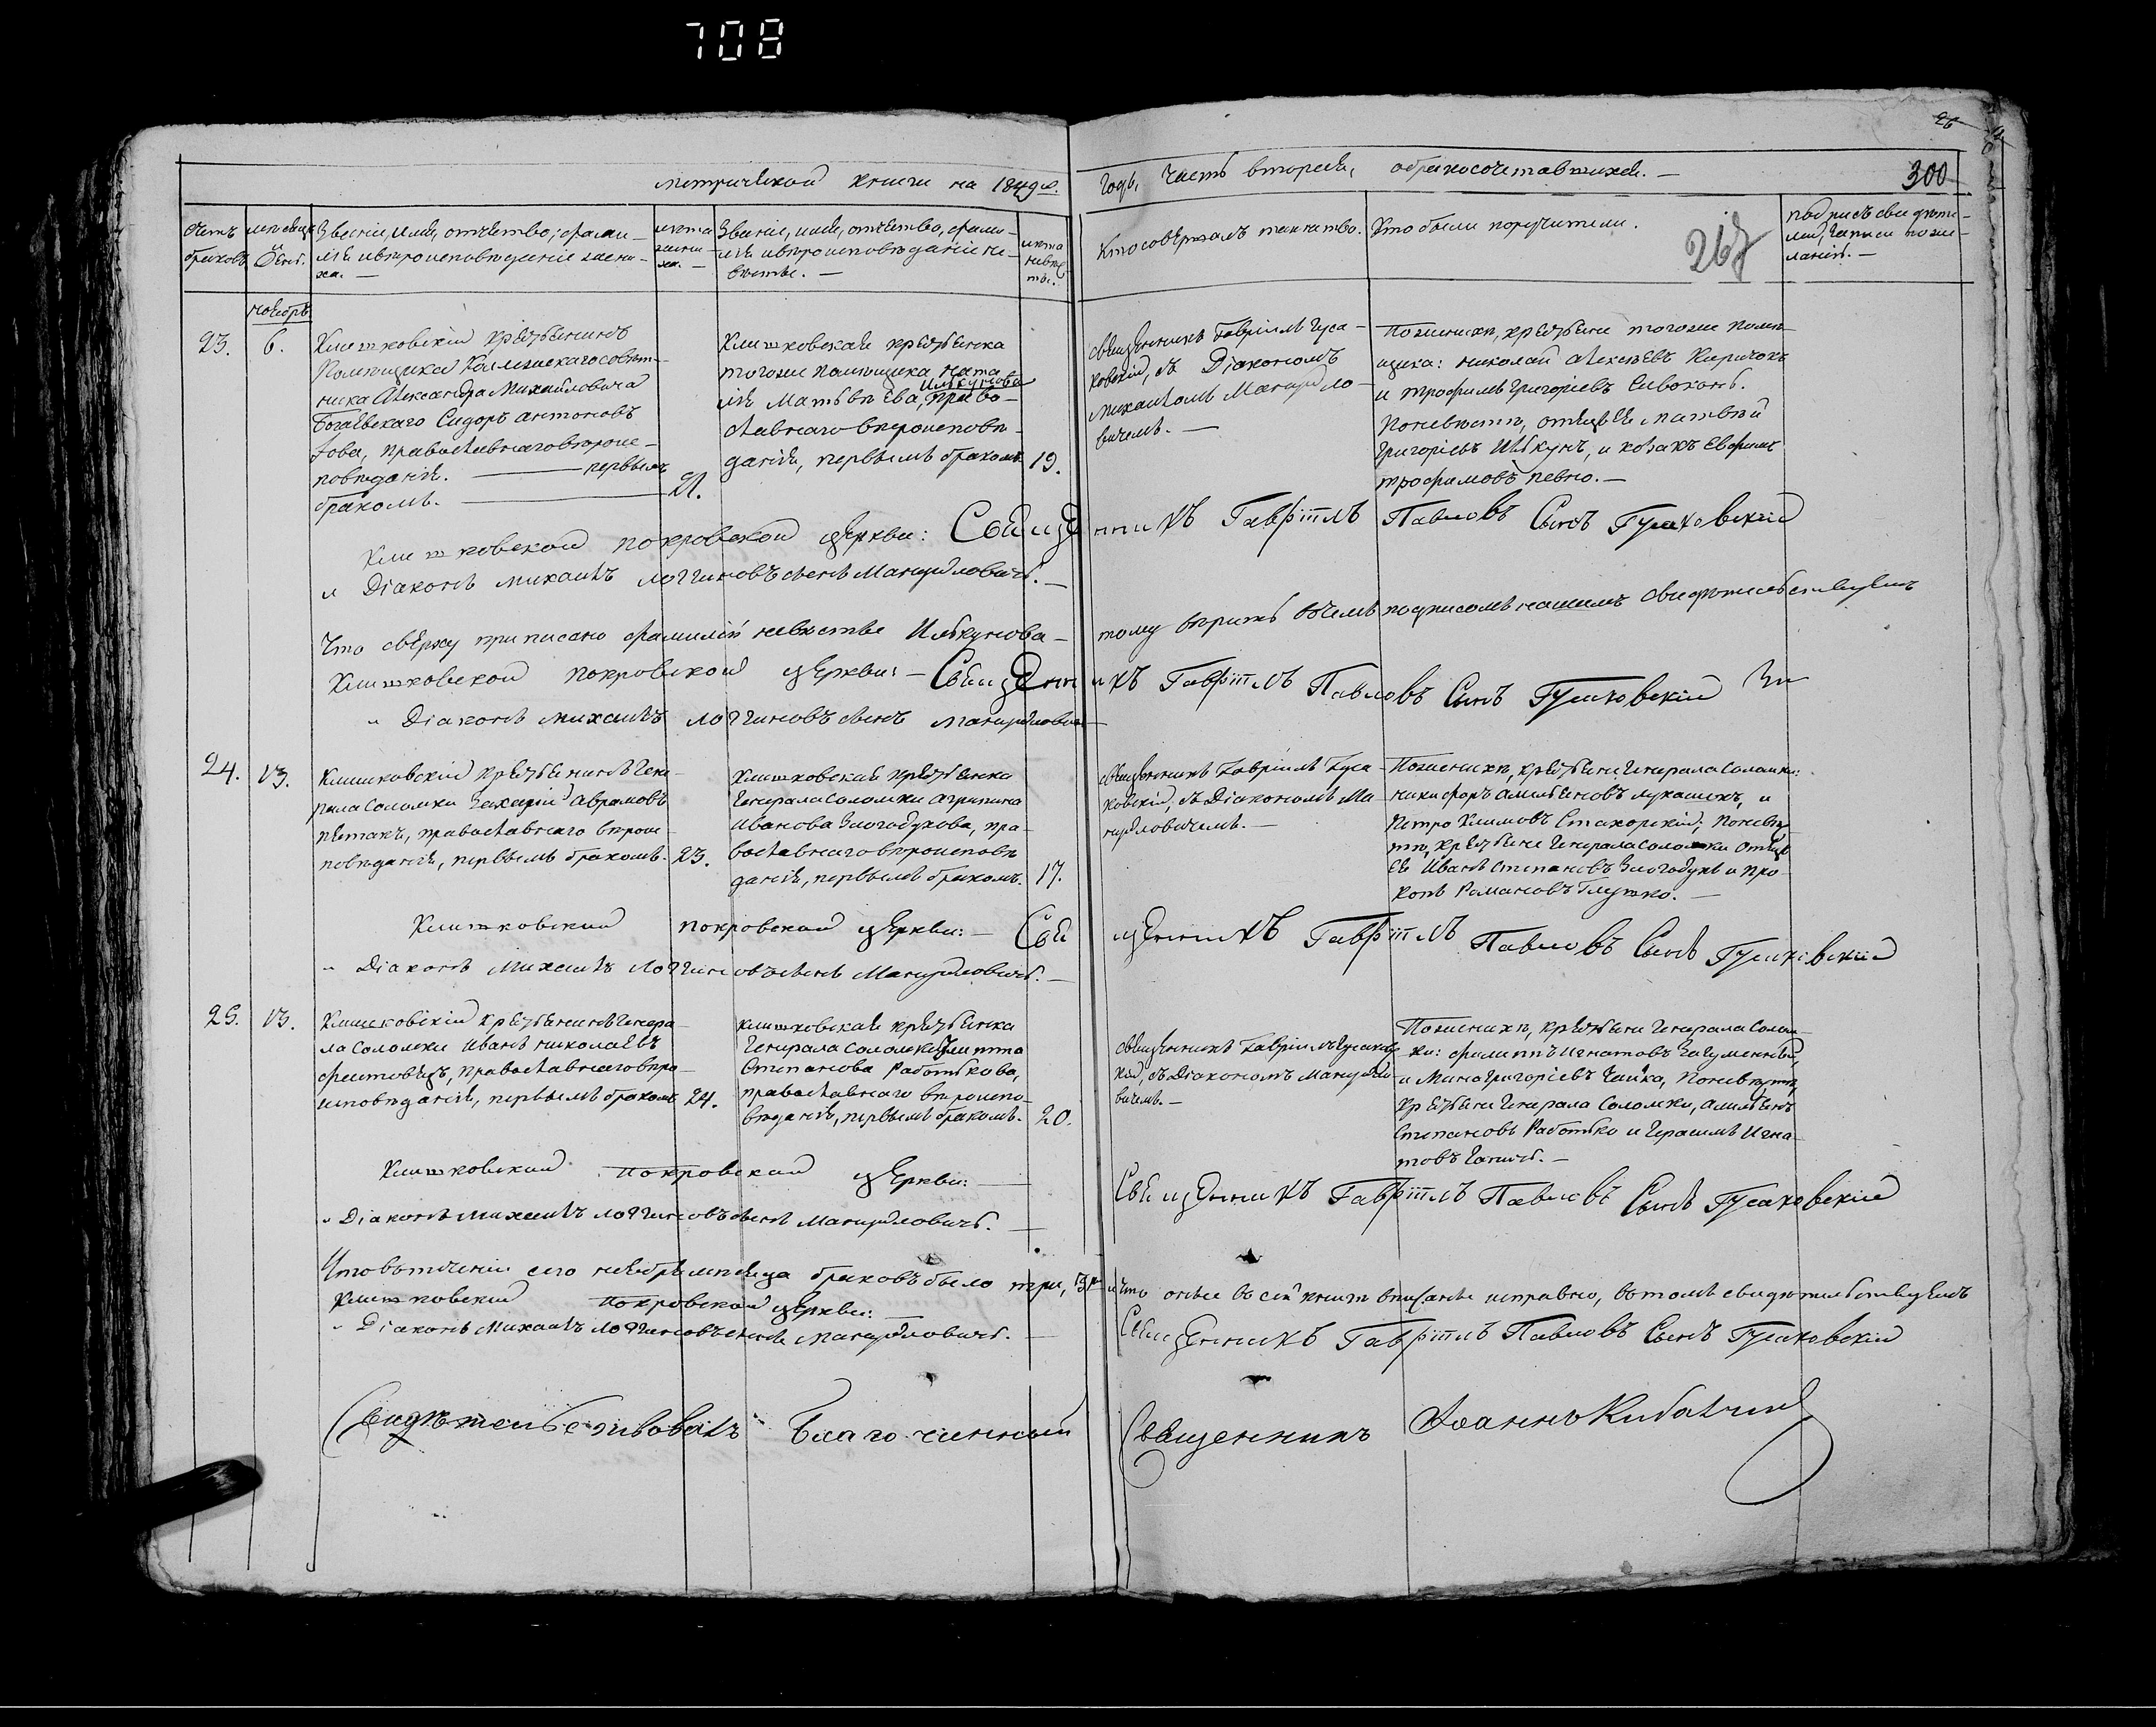 708
26
метрической книги на 1849й.
годъ, Часть вторая, обракосочетавшихся. —
300
267
Счетъ браковъ
мѣсяцъ и день.
Званіе, имя, отчество, фами-
лія и вѣроисповѣданіе жени-
ха. —
лѣта жени-
ха. —
Званіе, имя, отчество, фами-
лія и вѣроисповѣданіе не-
вѣсты. —
лѣта невѣс-
ты.
Кто совершалъ таинство.
Кто были поручители.
подпись свидѣте-
лей записи по же-
ланію. —
ноябрь
23.
6.
Клишковскій крестьянинъ
Помѣщика Коллежскаго совѣт-
ника Александра Михайловича
Богаевскаго Сидоръ Антоновъ
Зова, православнаго вѣроис-
повѣданія. — первымъ
бракомъ. —
21.
Клишковская крестьянка
тогоже помѣщика Ната
Ицькунова
лія Матвѣева, право-
славнаго вѣроисповѣ-
данія, первымъ бракомъ
19.
священникъ Гавріилъ Гуса-
ковскій, съ Діакономъ
Михаиломъ Мануйло-
вичемъ. —
По женихѣ, крестьяне тогоже помѣ-
щика: Николай Алексѣевъ Киричокъ
и Трофимъ Григоріевъ Сивоконь.
По невѣстѣ, отецъ ея Матвѣй
Григоріевъ Ицькунъ, и козакъ Евфимъ
Трофимовъ Певно. —
Клишковской покровской церкви: Священникъ Гавріилъ Павловъ Сынъ Гусаковскій
и Діаконъ Михаилъ Логгиновъ сынъ Мануйловичъ. —
Что сверху приписано фамилій невѣстѣ Ицькунова — тому вѣрить въ чемъ подписомъ нашимъ свидѣтельствуемъ
Клишковской покровской церкви: — Священникъ Гавріилъ Павловъ Сынъ Гусаковскій
и Діаконъ Михаилъ Логгиновъ сынъ Мануйловичъ
24.
13.
Клишковскій крестьянинъ Гене-
рала Соломки Захарій Аврамовъ
Пятакъ, православнаго вѣроис-
повѣданія, первымъ бракомъ.
23.
Клишковская крестьянка
Генерала Соломки Агрипина
Иванова Злогодухова, пра-
вославнаго вѣроисповѣ
данія, первымъ бракомъ.
17.
священникъ Гавріилъ Гуса-
ковскій, съ Діакономъ Ма-
нуйловичемъ. —
По женихѣ, крестьяне Генерала Соломки:
Никифоръ Амельяновъ Лукашекъ, и
Петро Климовъ Стахорскій; По невѣс-
тѣ, крестьяне Генерала Соломки отецъ
ея Иванъ Степановъ Злогодухъ и Про-
копъ Романовъ Глушко. —
Клишковской покровской церкви: — Священникъ Гавріилъ Павловъ Сынъ Гусаковскій
и Діаконъ Михаилъ Логгиновъ сынъ Мануйловичъ. —
25.
13.
Клишковскій крестьянинъ Генера-
ла Соломки Иванъ Николаевъ
православнаго вѣро-
исповѣданія, первымъ бракомъ
24.
Клишковская крестьянка
Генерала Соломки
Степанова Работькова,
православнаго вѣроиспо-
вѣданія, первымъ бракомъ.
20.
священникъ Гавріилъ Гусаковс-
кій, съ Діакономъ Мануйло-
вичемъ. —
По женихѣ, крестьяне Генерала Солом-
ки: Филиппъ Игнатовъ Загуменный,
и Мина Григоріевъ Чайка, По невѣстѣ,
крестьяне Генерала Соломки, Амильянъ
Степановъ Работько и Герасимъ Игна-
товъ
Клишковской покровской церкви: — Священникъ Гавріилъ Павловъ Сынъ Гусаковскій
и Діаконъ Михаилъ Логгиновъ сынъ Мануйловичъ. —
Что въ теченіи сего ноября мѣсяца браковъ было три, 3 и что оные въ сей книги вписаны исправно, въ томъ свидѣтельствуемъ
Клишковской покровской церкви: — Священникъ Гавріилъ Павловъ Сынъ Гусаковскій
и Діаконъ Михаилъ Логгиновъ сынъ Мануйловичъ. —
Свидѣтельствовалъ Благочинный Священникъ Іоаннъ Кибальчичъ